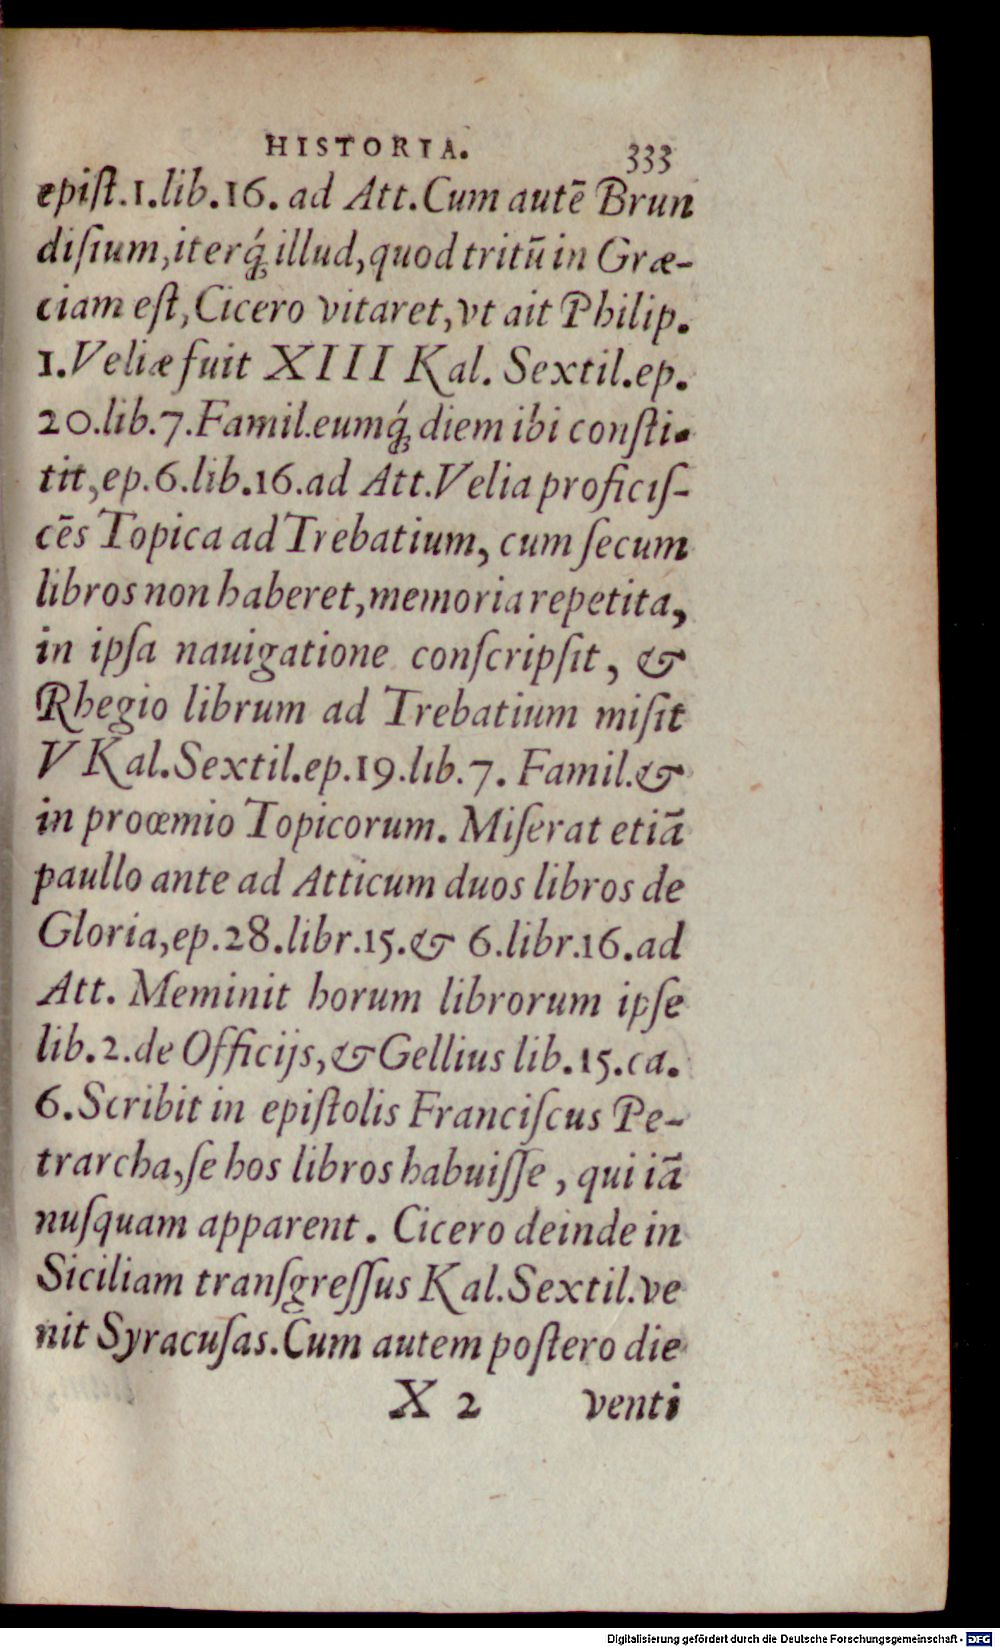 HISTORIA. 333
epiſt.1.lib.16. ad Att.Cum autē Brun
diſium,iterq́; illud,quod tritū in Græ-
ciam eſt,Cicero vitaret,vt ait Philip.
1.Veliæ fuit XIII Kal. Sextil.ep.
20.lib.7.Famil.eumq́; diem ibi conſti-
tit,ep.6.lib.16.ad Att.Velia proficiſ-
cēs Topica ad Trebatium, cum ſecum
libros non haberet,memoria repetita,
in ipſa nauigatione conſcripſit, &
Rhegio librum ad Trebatium miſit
V Kal.Sextil.ep.19.lib.7. Famil.&
in proœmio Topicorum. Miſerat etiā
paullo ante ad Atticum duos libros de
Gloria,ep.28.libr.15.& 6.libr.16.ad
Att. Meminit horum librorum ipſe
lib.2.de Officijs,& Gellius lib.15.ca.
6.Scribit in epiſtolis Franciſcus Pe-
trarcha,ſe hos libros habuiſſe, qui iā
nuſquam apparent. Cicero deinde in
Siciliam tranſgreſſus Kal.Sextil.ve
nit Syracuſas.Cum autem poſtero die
X 2 venti
Digitalisierung gefördert durch die Deutsche Forschungsgemeinschaft - DFG